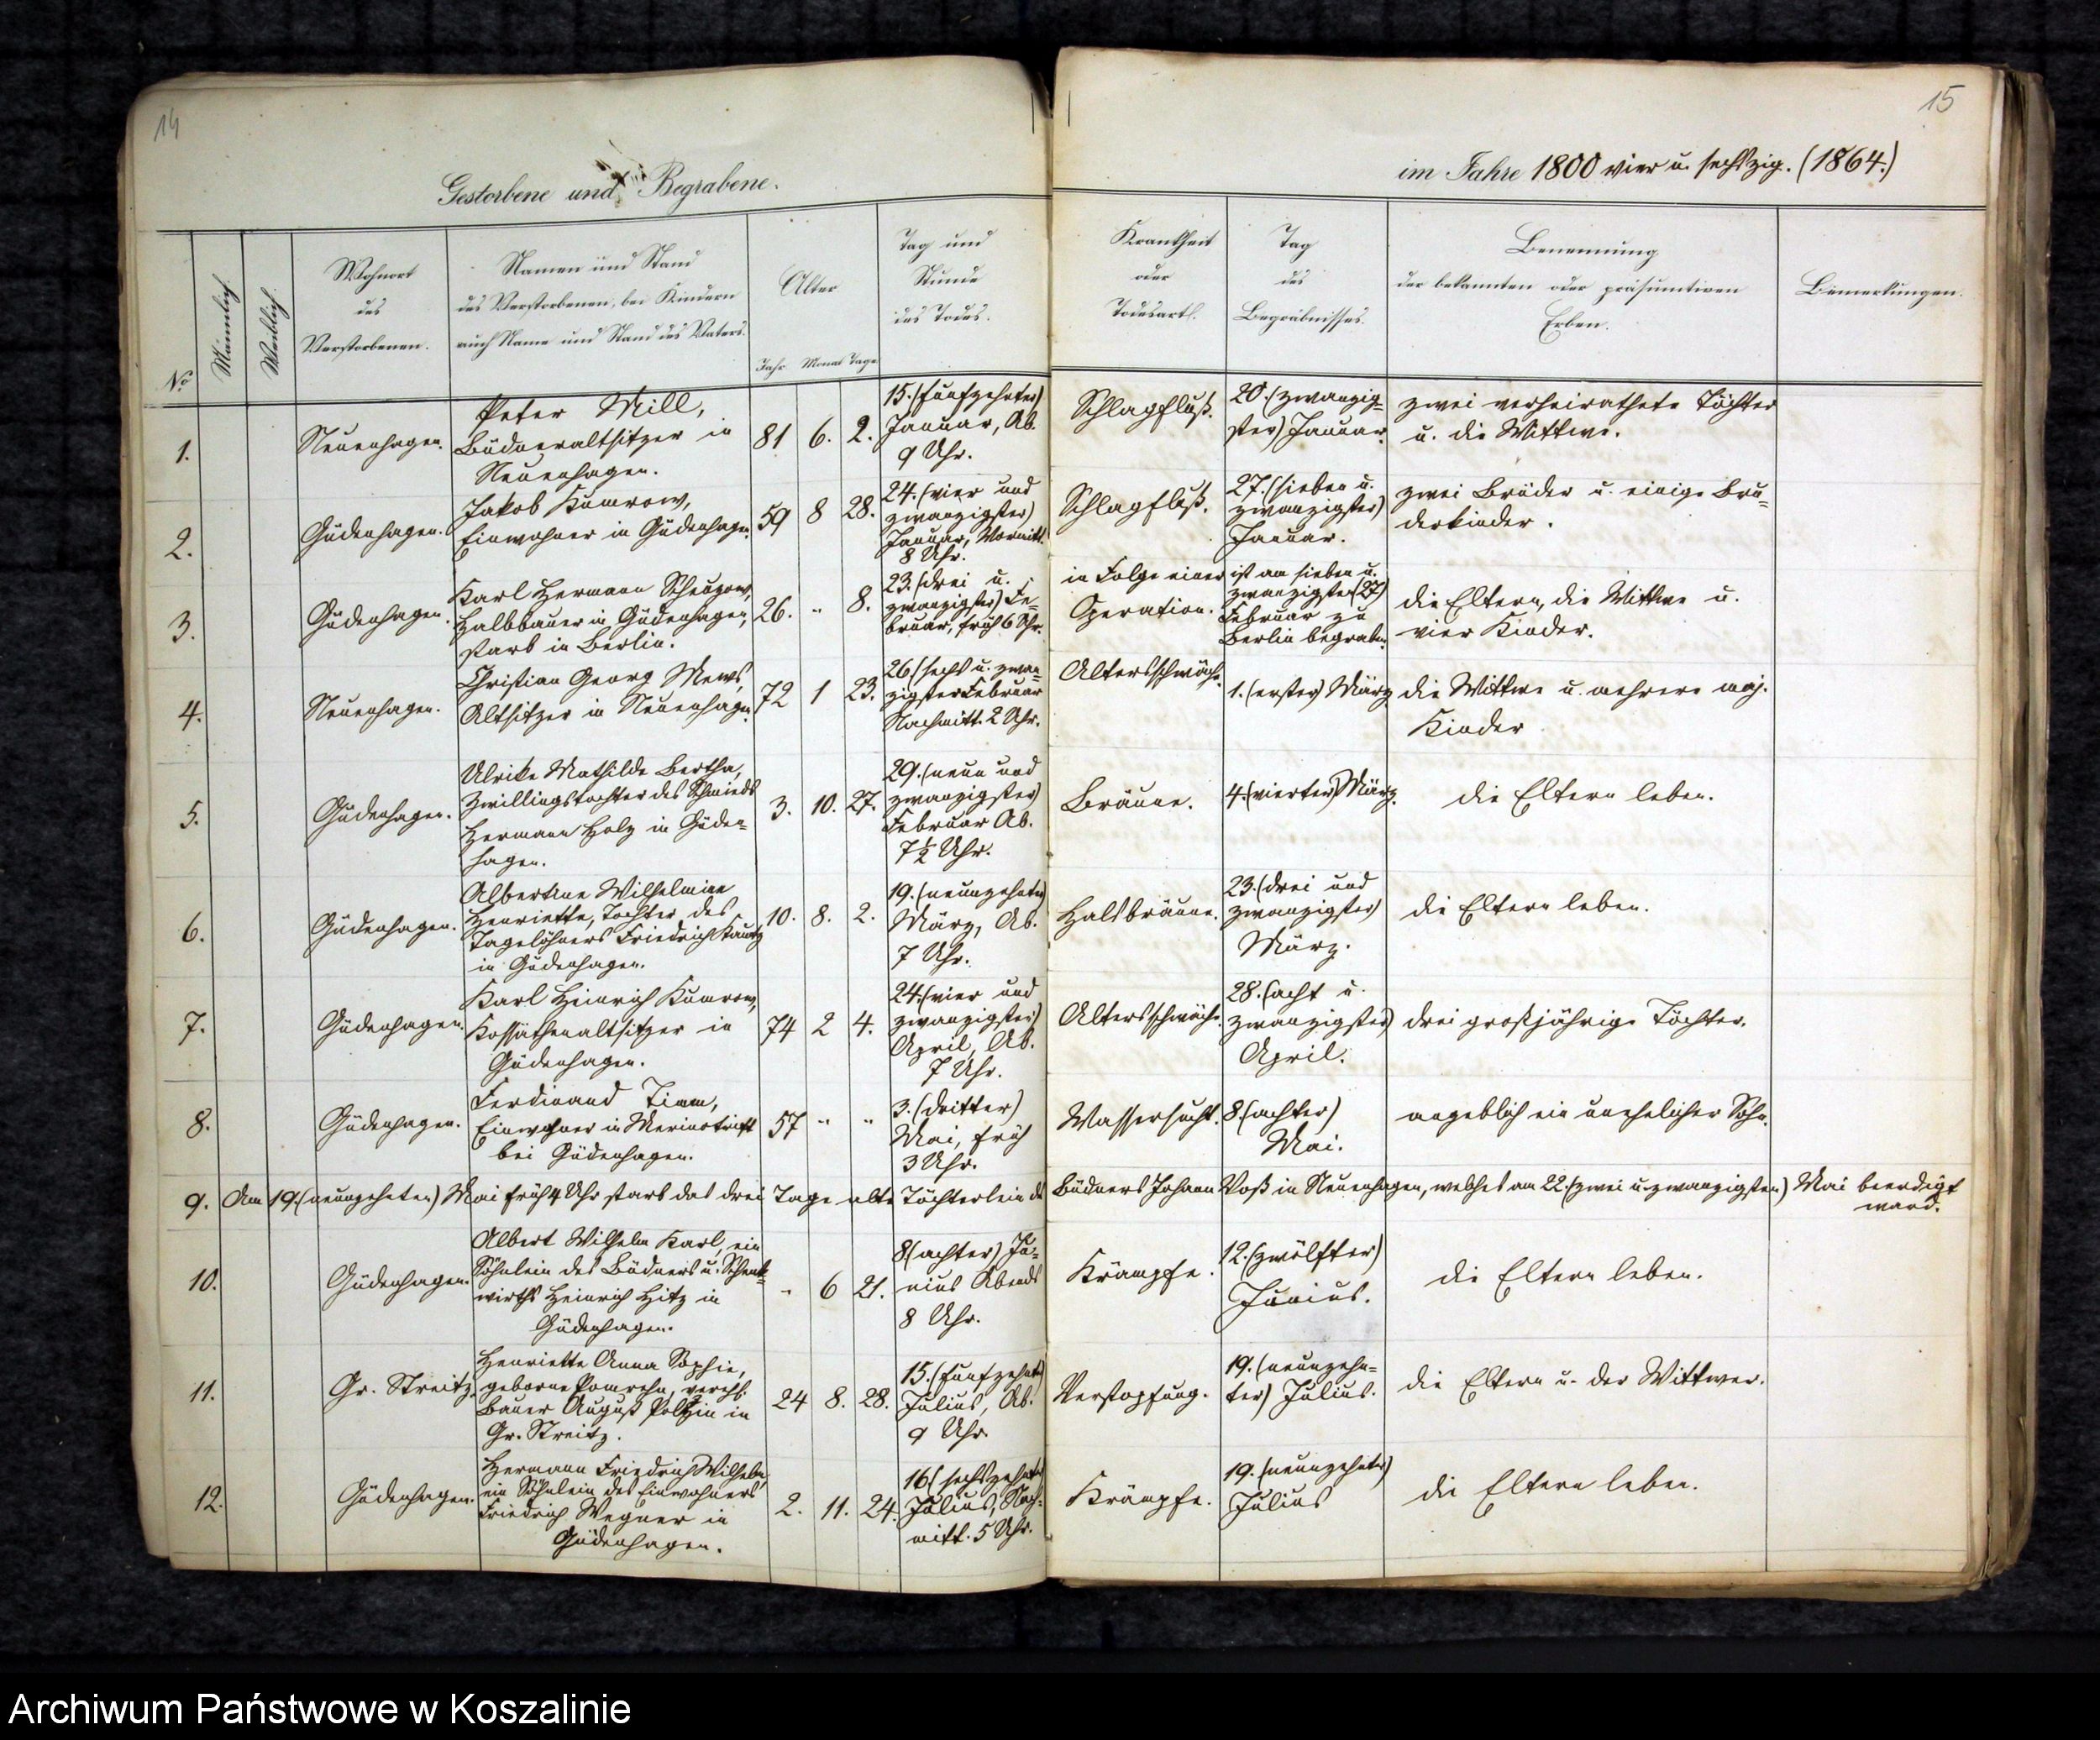 14
Gestorbene und Begrabene.
No
Männlich
Weiblich.
Wohnort
des
Verstorbenen.
Namen und Stand
des Verstorbenen, bei Kindern
auch Name und Stand des Vaters.
Alter
Jahr Monat Tage
Tag und
Stunde
des Todes.
1.
Neuenhagen.
Peter Mill,
Büdneraltsitzer in
Neuenhagen.
81 6. 2.
15. (fünfzehnter)
Januar, Ab.
9 Uhr.
2.
Güdenhagen.
Jakob Kumrow,
Einwohner in Güdenhagen.
59 8 28.
24. (vier und
zwanzigster)
Januar, Vormitt.
8 Uhr.
3.
Güdenhagen.
Karl Hermann
Halbbauer in Güdenhagen,
starb in Berlin.
26. " 8.
23. (drei u.
zwanzigster) Fe-
bruar, früh 6 Uhr.
4.
Neuenhagen.
Christian Georg Mews,
Altsitzer in Neuenhagen.
72 1 23.
26 (sechs u. zwan-
zigster Februar
Nachmitt. 2 Uhr.
5.
Güdenhagen.
Ulrike Mathilde Bertha,
Zwillingstochter des Schmieds
Hermann Holz in Güden-
hagen.
3. 10. 27.
29. (neun und
zwanzigster)
Februar Ab.
7½ Uhr.
6.
Güdenhagen.
Albertine Wilhelmine
Henriette, Tochter des
Tagelöhners Friedrich
in Güdenhagen.
10. 8. 2.
19. (neunzehnter)
März, Ab.
7 Uhr.
7.
Güdenhagen.
Karl Heinrich Kumrow,
Kossäthenaltsitzer in
Güdenhagen.
74 2 4.
24. (vier und
zwanzigster)
April, Ab.
7 Uhr.
8.
Güdenhagen.
Ferdinand Timm,
Einwohner in Merinotrift
bei Güdenhagen.
57 " "
3. (dritter)
Mai, früh
3 Uhr.
9. Am 19. (neunzehnten) Mai früh 4 Uhr starb das drei Tage alte Töchterlein des
10.
Güdenhagen.
Albert Wilhelm Karl, ein
Söhnlein des Büdners u. Schenk-
wirths Heinrich Hitz in
Güdenhagen.
" 6 21.
8. (achter) Ju-
nius Abends
8 Uhr.
11.
Gr. Streitz.
Henriette Anna Sophie,
geborne Pomrehn, verehl.
Bauer August Polzin in
Gr. Streitz.
24 8. 28.
15. (fünfzehnter)
Julius, Ab.
9 Uhr.
12.
Güdenhagen.
Hermann Friedrich Wilhelm,
ein Söhnlein des Einwohners
Friedrich Wegner in
Güdenhagen.
2. 11. 24.
16 (sechszehnter)
Julius, Nach-
mitt. 5 Uhr.
15
im Jahre 1800 vier u. sechszig. (1864.)
Krankheit
oder
Todesart.
Tag
des
Begräbnisses.
Benennung
der bekannten oder präsumtiven
Erben.
Bemerkungen.
Schlagfluß.
20. (zwanzig-
ster) Januar.
zwei verheirathete Töchter
u. die Wittwe.
Schlagfluß.
27. (sieben u.
zwanzigster)
Januar.
zwei Brüder u. einige Bru-
derkinder.
in Folge einer
Operation.
ist am sieben u.
zwanzigsten (27)
Februar zu
Berlin begraben.
die Eltern, die Wittwe u.
vier Kinder.
Altersschwäche.
1. (erster) März
die Wittwe u. mehrere maj.
Kinder
Bräune.
4. (vierter) März.
die Eltern leben.
Halsbräune.
23. (drei und
zwanzigster)
März.
die Eltern leben.
Altersschwäche.
28. (acht u.
zwanzigster)
April.
drei großjährige Töchter.
Wassersucht.
8. (achter)
Mai.
angeblich ein unehelicher Sohn.
Büdners Johann Voß in Neuenhagen, welches am 22. (zwei u. zwanzigsten) Mai beerdigt
ward.
Krämpfe.
12. (zwölfter)
Junius.
die Eltern leben.
Verstopfung.
19. (neunzehn-
ter) Julius.
die Eltern u. der Wittwer.
Krämpfe.
19. (neunzehnter)
Julius
die Eltern leben.
Archiwum Państwowe w Koszalinie